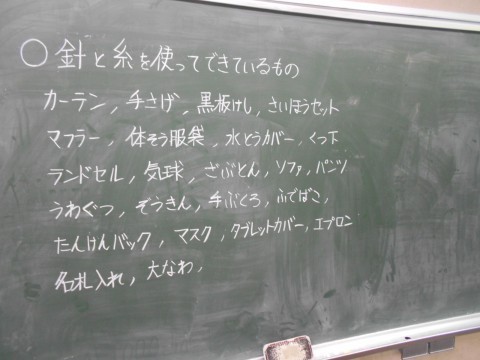 ○針と糸を使ってできているもの
カーテン，手さげ，黒板けし，さいほうセット
マフラー，体そう服袋，水とうカバー，くつ下
ランドセル，気球，ざぶとん，ソファ，パンツ
うわぐつ，ぞうきん，手ぶくろ，ふでばこ，
たんけんバック，マスク，タブレットカバー，エプロン
名札入れ，大なわ，